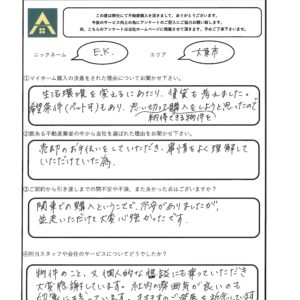 この度は弊社にて不動産購入を頂きまして、ありがとうございます。
今後のサービス向上の為にアンケートのご記入にご協力お願い致します。
尚、こちらのアンケートは当社ホームページに掲載させて頂きます。予めご了承下さいませ。
ニックネーム E.K. エリア 大東市
①マイホーム購入の決意をされた理由についてお聞かせ下さい。
生活環境を変えるにあたり、賃貸も考えました。
希望条件(ペット可)もあり、思い切って購入をしようと思ったので
納得できる物件を
②数ある不動産業者の中から当社を選ばれた理由をお聞かせ下さい。
売却のお手伝いをしていただき、事情をよく理解して
いただけていた為。
③ご契約から引き渡しまでの間不安や不満、また良かった点はございますか?
関東での購入ということで、不安がありましたが、
並走いただけて大変心強かったです。
④担当スタッフや会社のサービスについてどうでしたか?
物件のこと、又個人的な相談にも乗っていただき
大変感謝しています。社内の雰囲気が良いのも